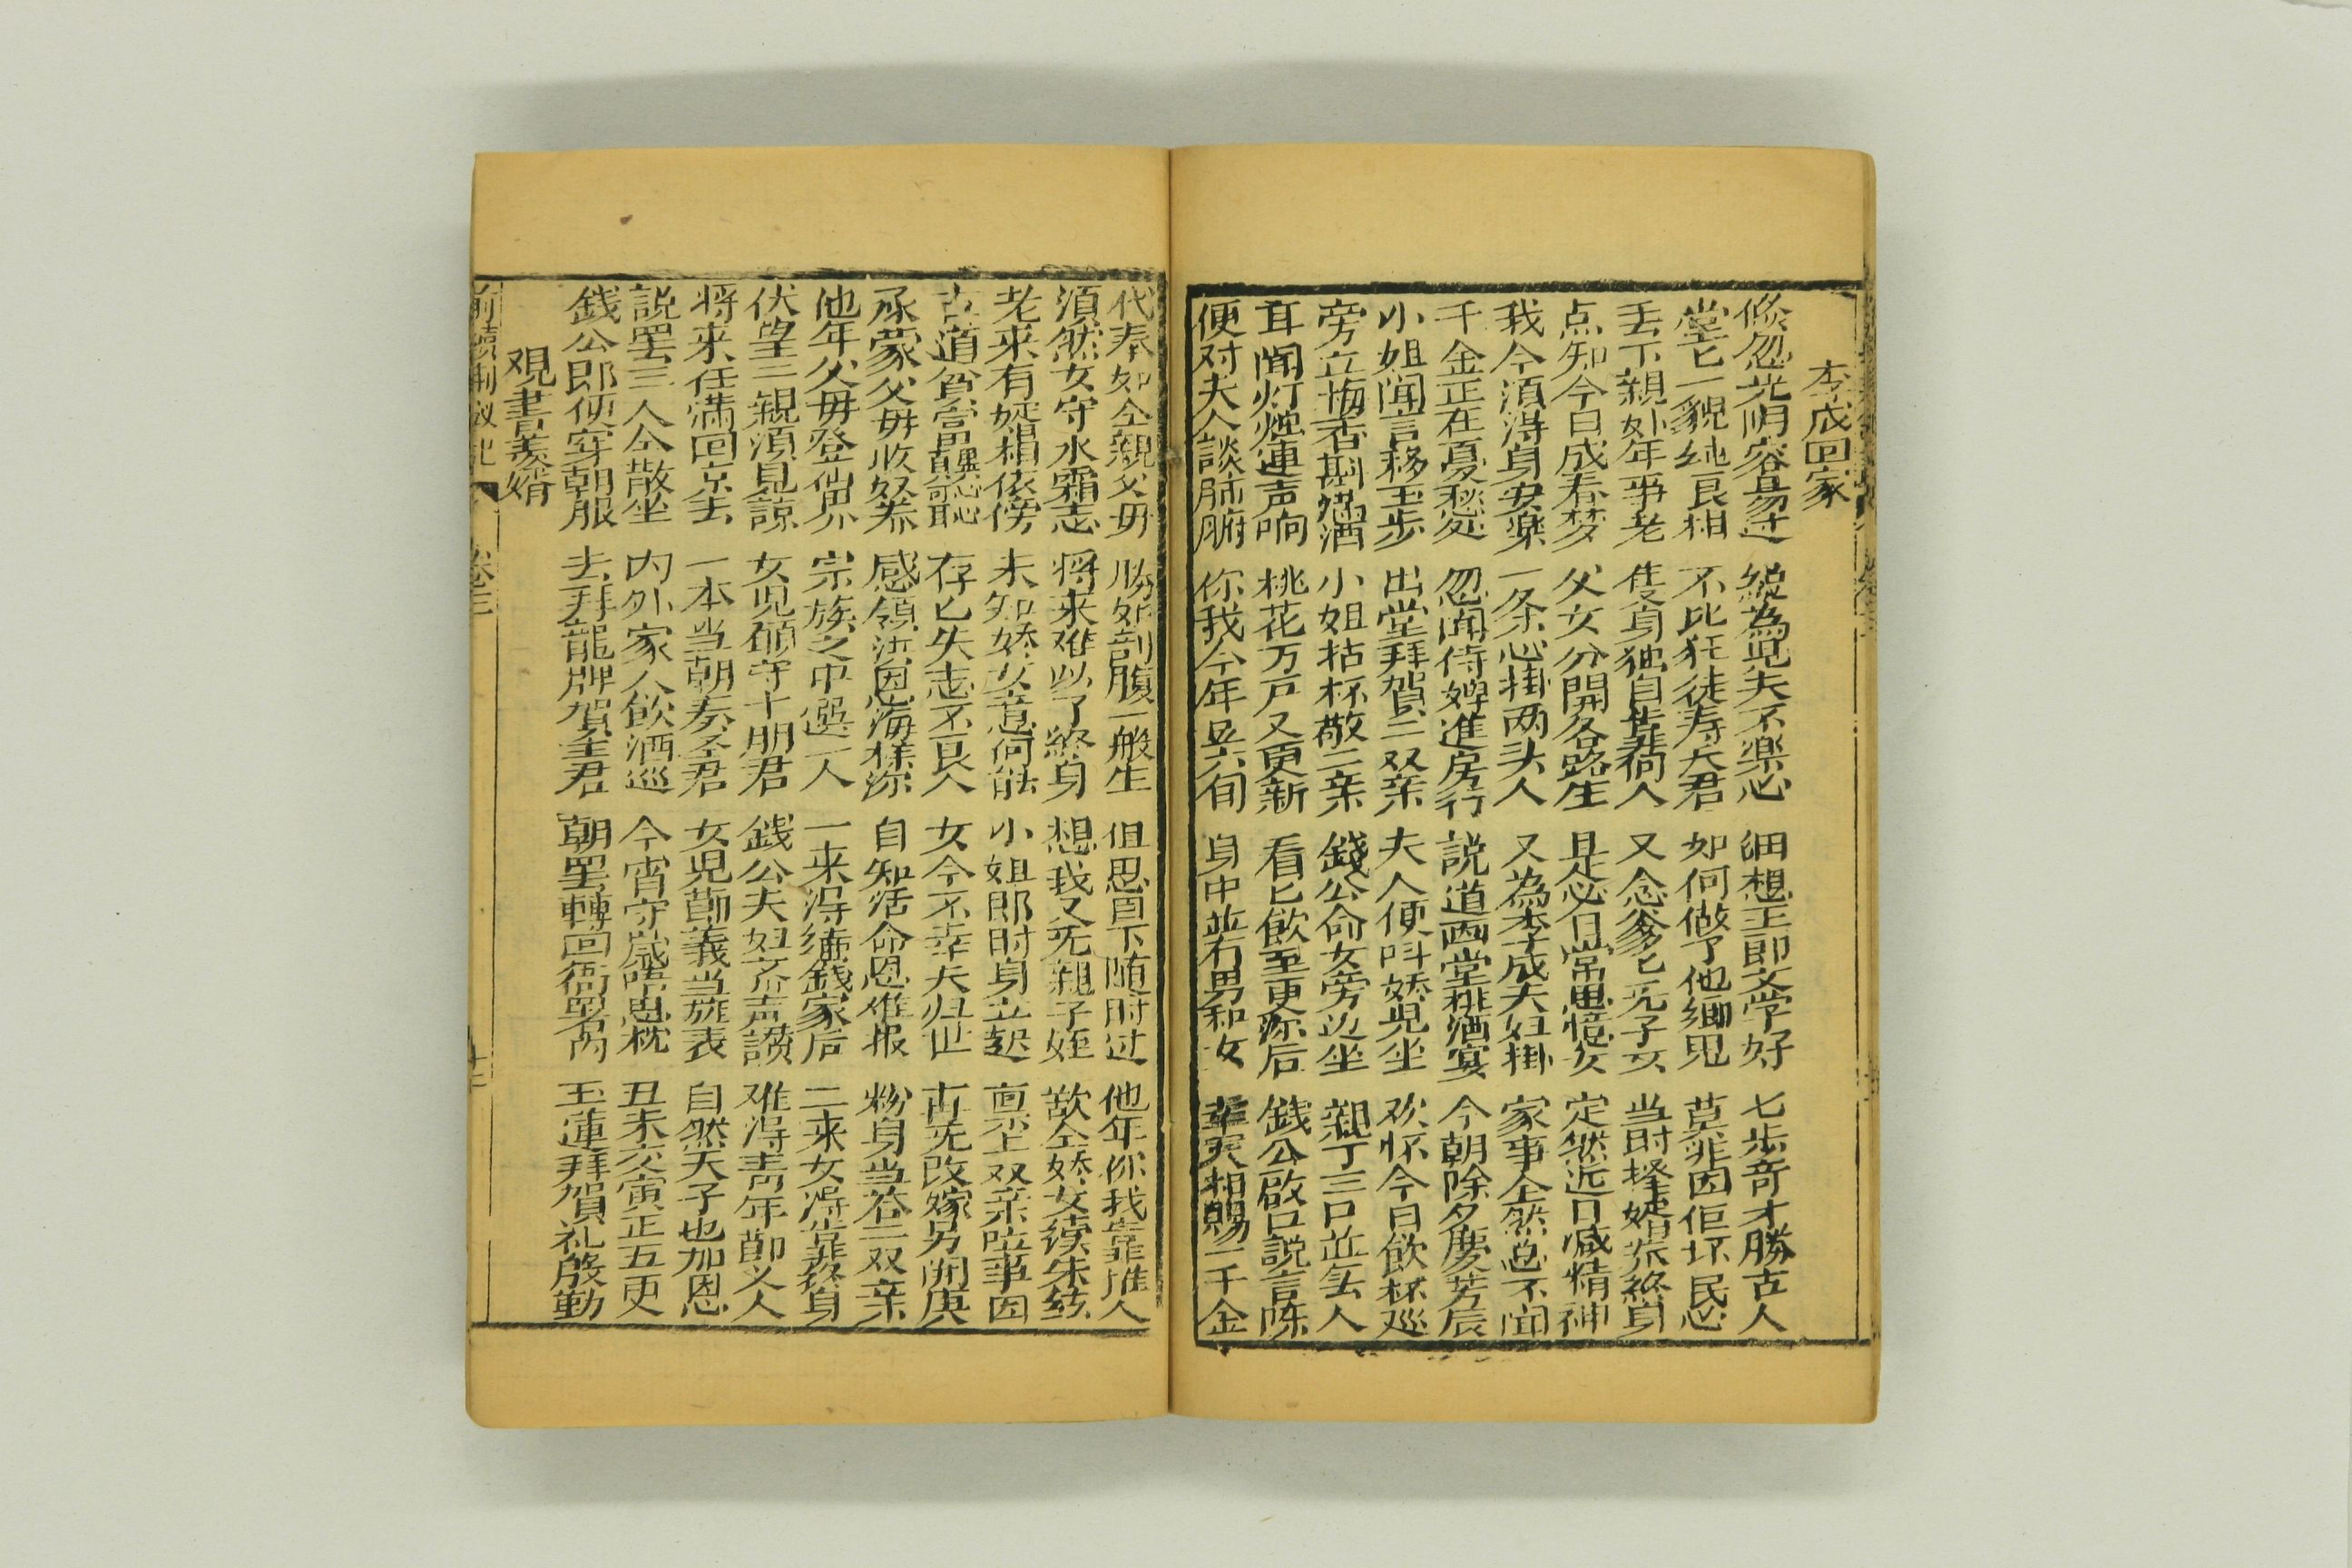 李成回家
倏忽光阴容易过 総為児夫不楽心 细想王郎文学好 七步奇才勝古人
堂匕一貌纯良相 不比狂徒寿夭君 如何做了他鄉鬼 莫非因佢坏民心
丢下親外年事老 隻身独自靠何人 又念爹匕无子女 当时择婿靠終身
点知今日成春梦 父女分開各路生 是必日常思憶女 定然近日减精神
我今須淂身安楽 一条心掛两头人 又為李成夫妇掛 家事仝然总不闻
千金正在憂愁处 忽闻侍婢進房行 説道西堂排酒宴 今朝除夕慶芳辰
小姐闻言移玉步 出堂拜賀二双亲 夫人便呌娇児坐 欢怀今日飲杯巡
旁立梅香斟煖酒 小姐拈杯敬二亲 錢公命女旁边坐 親丁三口並無人
耳闻灯炮連声响 桃花万户又更新 看匕飲至更深后 錢公啟口説言陈
便对夫人談肺腑 你我今年呈六旬 身中並冇男和女 華天相賜一千金
代奉如仝親父毋 勝如剖腹一般生 但思目下随时过 他年你我靠誰人
須然女守氷霜志 将来难以了終身 想我又无親子姪 歆仝娇女续朱絃
老來有婿相依傍 未知娇女意何能 小姐郎时身立起 禀上双亲啦事因
古道貧窮果恐耻 存匕失志不良人 女今不幸夫归世 古无改嫁另開庚
承蒙父毋收奴养 感領洪恩海様深 自知活命恩难报 粉身当荅二双亲
他年父毋登仙界 宗族之中選一人 一来淂继錢家后 二来女淂靠終身
伏望二親須見諒 女児願守十朋君 錢公夫妇齐声讃 难淂青年節义人
将来任满回京去 一本当朝奏圣君 女児節義当旌表 自然天子也加恩
説罢三人仝散坐 内外家人飲酒巡 今宵守歲唔思枕 丑未交寅正五更
錢公郎便穿朝服 去拜龍牌賀圣君 朝罢轉回衙署内 玉蓮拜賀礼殷勤
覌書羡婿
前續荆釵記 卷三 十三